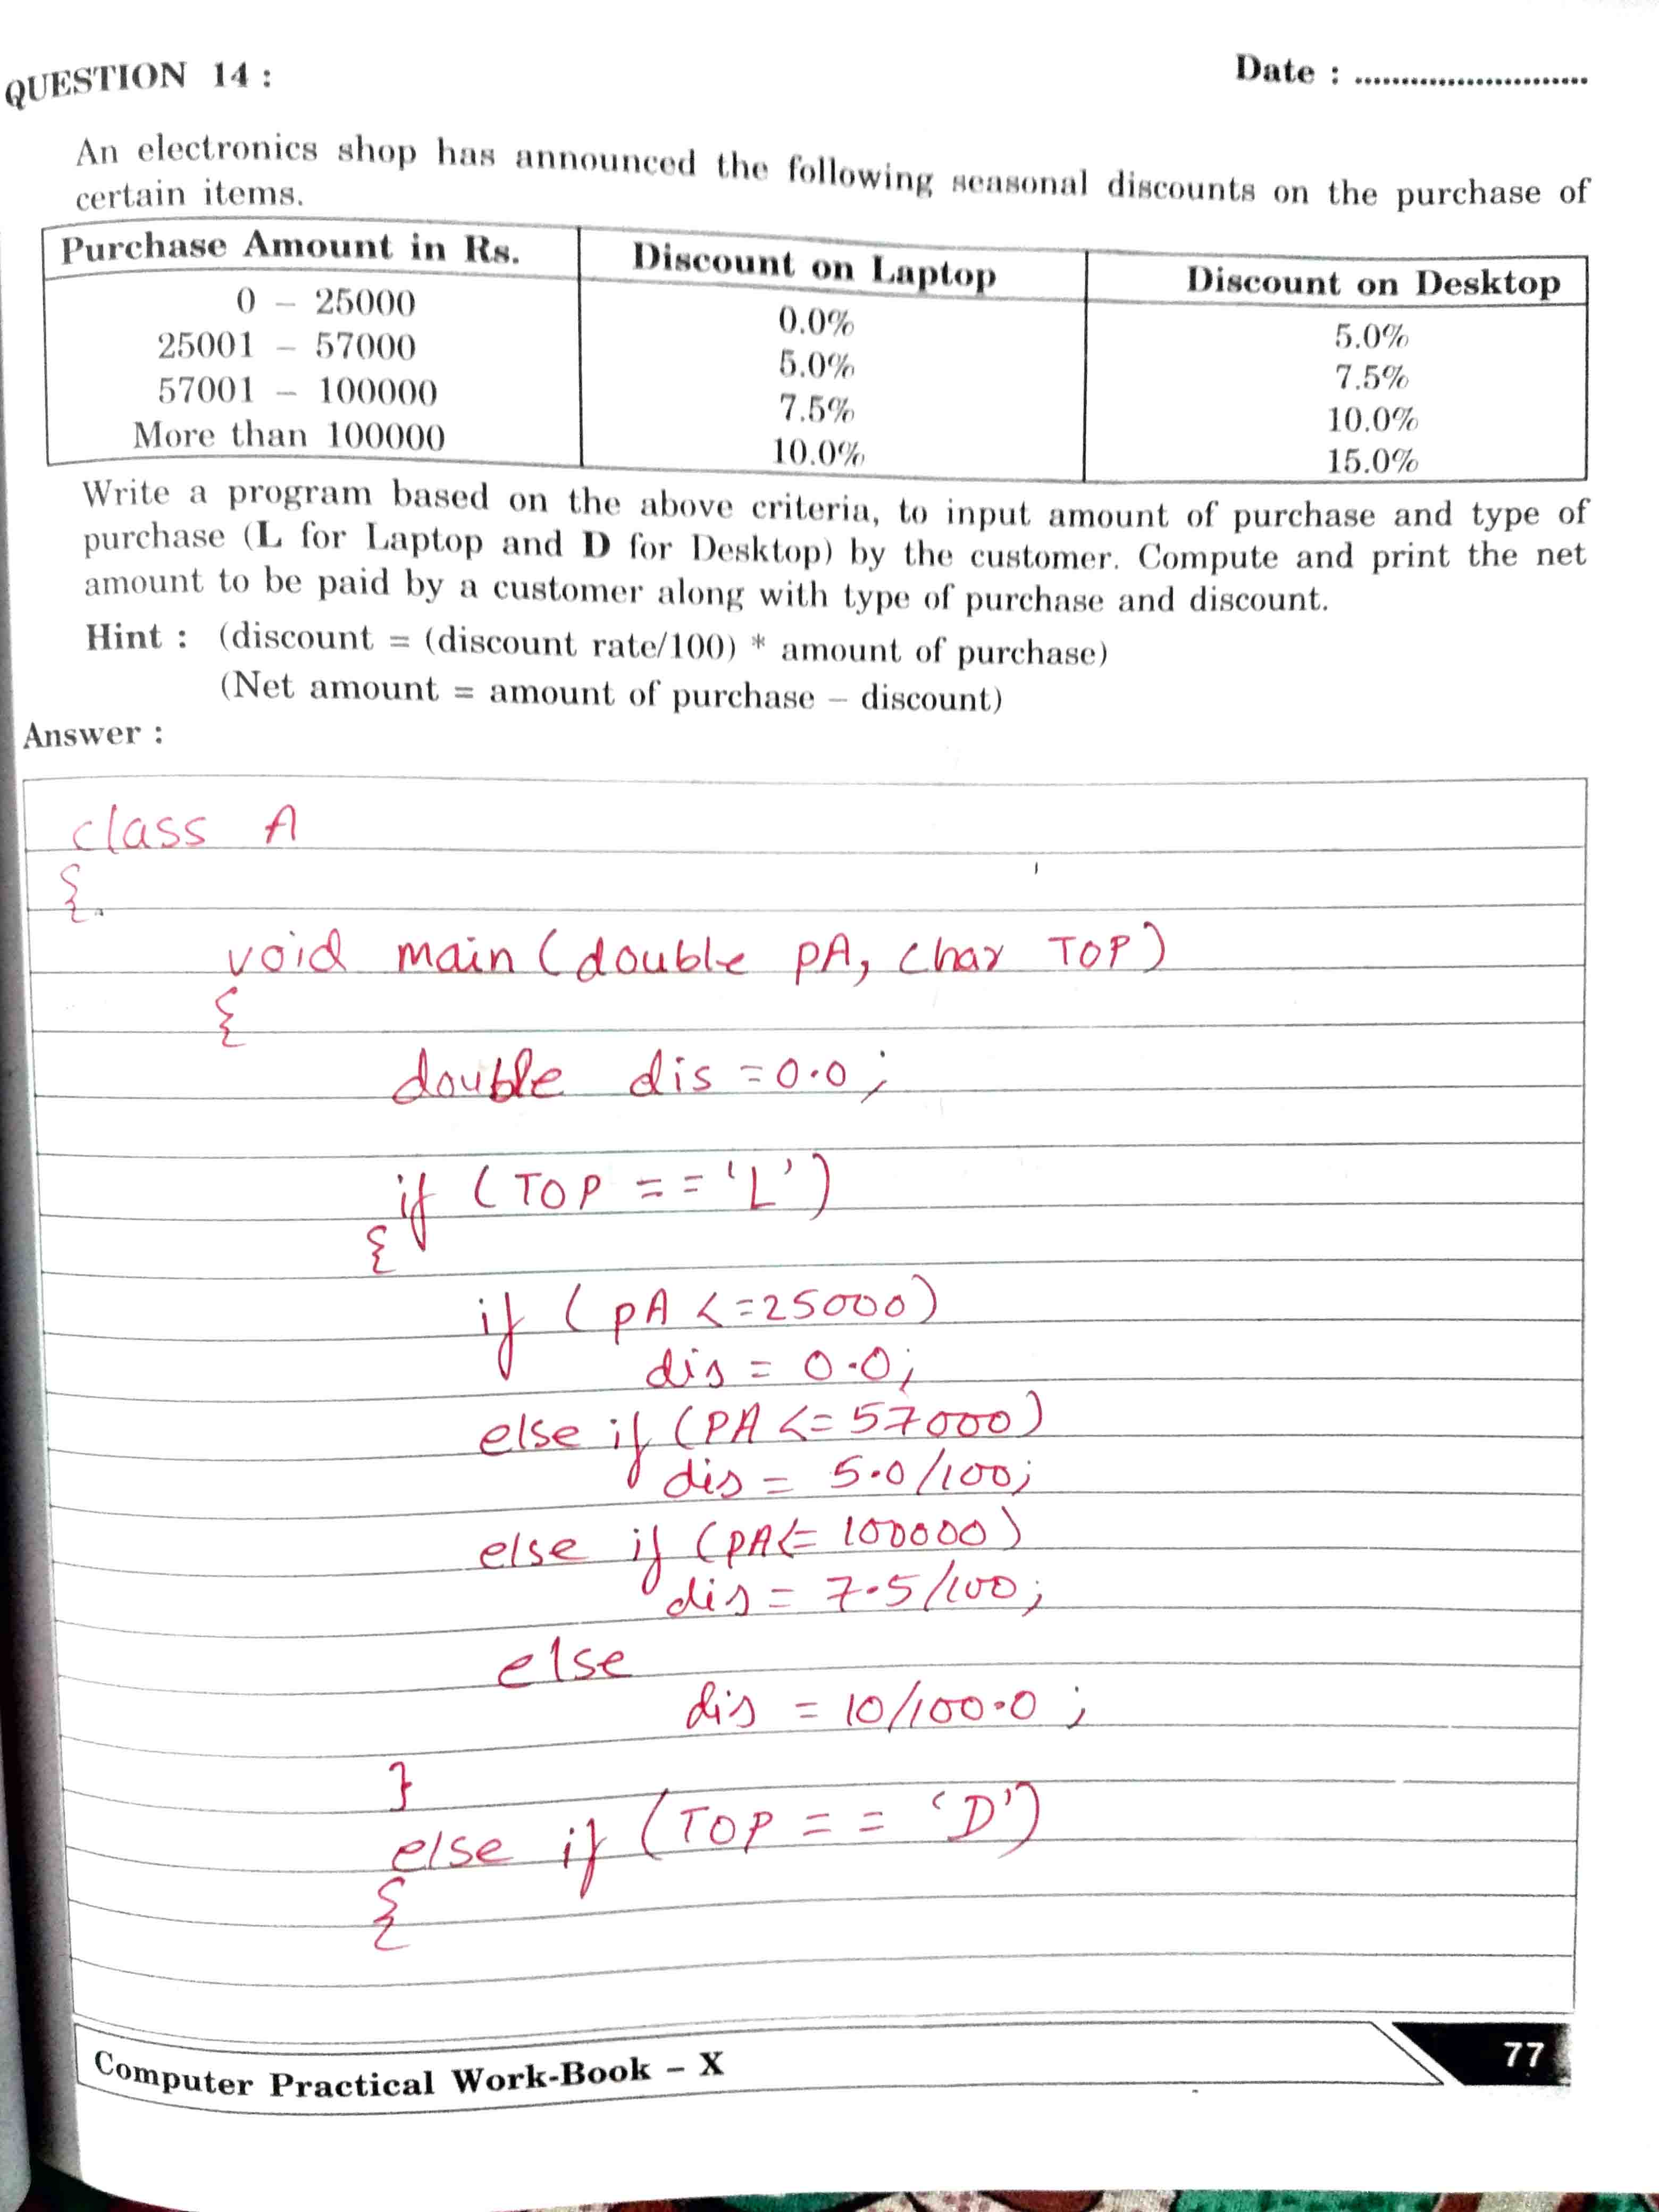 QUESTION 14 :
Date : ..........................
An electronics shop has announced the following seasonal discounts on the purchase of
certain items.
Purchase Amount in Rs. Discount on Laptop Discount on Desktop
0 – 25000 0.0% 5.0%
25001 – 57000 5.0% 7.5%
57001 – 100000 7.5% 10.0%
More than 100000 10.0% 15.0%
Write a program based on the above criteria, to input amount of purchase and type of
purchase (L for Laptop and D for Desktop) by the customer. Compute and print the net
amount to be paid by a customer along with type of purchase and discount.
Hint : (discount = (discount rate/100) * amount of purchase)
(Net amount = amount of purchase – discount)
Answer :
class A
{
void main (double pA, char TOP)
{
double dis = 0.0 ;
if (TOP == 'L')
{
if (pA <= 25000)
dis = 0.0;
else if (PA <= 57000)
dis = 5.0/100;
else if (pA <= 100000)
dis = 7.5/100;
else
dis = 10/100.0 ;
}
else if (TOP == 'D')
{
Computer Practical Work-Book – X
77